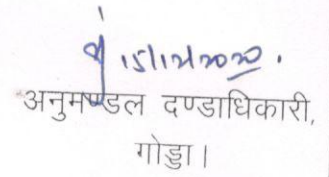 15/12/2020.
अनुमण्डल दण्डाधिकारी,
गोड्डा।